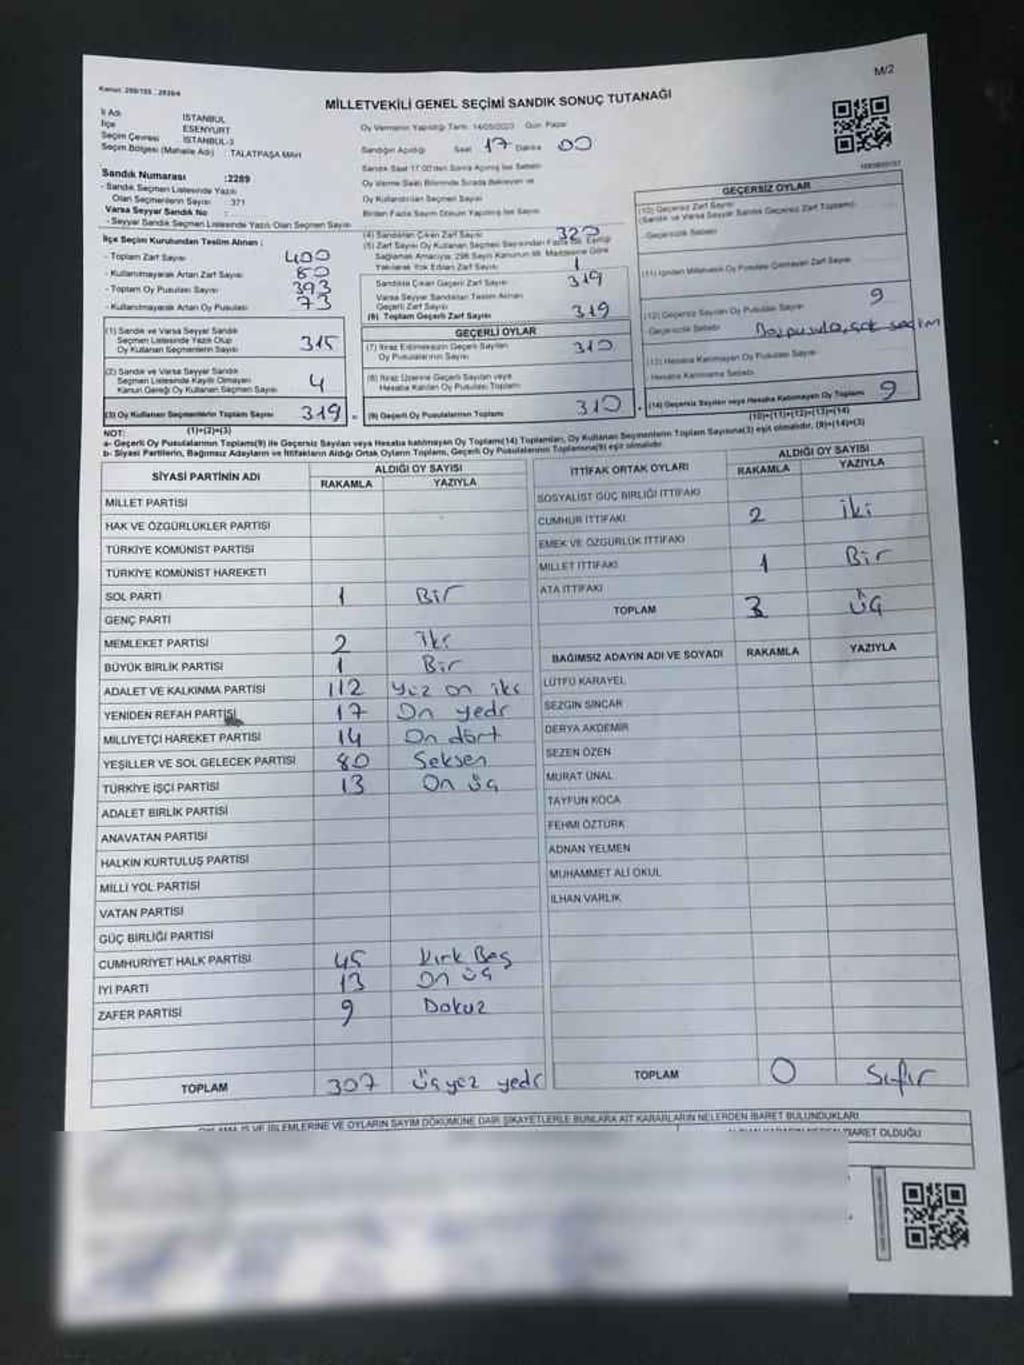 Kanun: 298/105 - 2839/4
M/2
MİLLETVEKİLİ GENEL SEÇİMİ SANDIK SONUÇ TUTANAĞI
İl Adı : İSTANBUL
İlçe : ESENYURT
Seçim Çevresi : İSTANBUL-3
Seçim Bölgesi (Mahalle Adı) : TALATPAŞA MAH
Oy Vermenin Yapıldığı Tarih: 14/05/2023 Gün: Pazar
Sandığın Açıldığı Saat 17 Dakika 00
Sandık Saat 17:00'den Sonra Açılmış İse Sebebi
Oy Verme Saati Bitiminde Sırada Bekleyen ve
Oy Kullandırılan Seçmen Sayısı
Birden Fazla Sayım Döküm Yapılmış İse Sayısı
Sandık Numarası :2289
- Sandık Seçmen Listesinde Yazılı
Olan Seçmenlerin Sayısı : 371
Varsa Seyyar Sandık No :
- Seyyar Sandık Seçmen Listesinde Yazılı Olan Seçmen Sayısı
İlçe Seçim Kurulundan Teslim Alınan :
- Toplam Zarf Sayısı : 400
- Kullanılmayarak Artan Zarf Sayısı : 80
- Toplam Oy Pusulası Sayısı : 393
- Kullanılmayarak Artan Oy Pusulası : 73
(1) Sandık ve Varsa Seyyar Sandık
Seçmen Listesinde Yazılı Olup
Oy Kullanan Seçmenlerin Sayısı 315
(2) Sandık ve Varsa Seyyar Sandık
Seçmen Listesinde Kayıtlı Olmayan
Kanun Gereği Oy Kullanan Seçmen Sayısı 4
(3) Oy Kullanan Seçmenlerin Toplam Sayısı 319
(1)+(2)=(3)
(4) Sandıktan Çıkan Zarf Sayısı 320
(5) Zarf Sayısı Oy Kullanan Seçmen Sayısından Fazla İse, Eşitliği
Sağlamak Amacıyla, 298 Sayılı Kanunun 98. Maddesine Göre
Yakılarak Yok Edilen Zarf Sayısı 1
Sandıkta Çıkan Geçerli Zarf Sayısı 319
Varsa Seyyar Sandıktan Teslim Alınan
Geçerli Zarf Sayısı
(6) Toplam Geçerli Zarf Sayısı 319
GEÇERLİ OYLAR
(7) İtiraz Edilmeksizin Geçerli Sayılan
Oy Pusulalarının Sayısı 310
(8) İtiraz Üzerine Geçerli Sayılan veya
Hesaba Katılan Oy Pusulası Toplamı
(9) Geçerli Oy Pusulalarının Toplamı 310
GEÇERSİZ OYLAR
(10) Geçersiz Zarf Sayısı
(Sandık ve Varsa Seyyar Sandık Geçersiz Zarf Toplamı)
- Geçersizlik Sebebi
(11) İçinden Milletvekili Oy Pusulası Çıkmayan Zarf Sayısı
(12) Geçersiz Sayılan Oy Pusulası Sayısı 9
- Geçersizlik Sebebi
(13) Hesaba Katılmayan Oy Pusulası Sayısı
- Hesaba Katılmama Sebebi
(14) Geçersiz Sayılan veya Hesaba Katılmayan Oy Toplamı 9
(10)+(11)+(12)+(13)=(14)
NOT:
a- Geçerli Oy Pusulalarının Toplamı(9) ile Geçersiz Sayılan veya Hesaba katılmayan Oy Toplamı(14) Toplamları, Oy Kullanan Seçmenlerin Toplam Sayısına(3) eşit olmalıdır, (9)+(14)=(3)
b- Siyasi Partilerin, Bağımsız Adayların ve İttifakların Aldığı Ortak Oyların Toplamı, Geçerli Oy Pusulalarının Toplamına(9) eşit olmalıdır.
SİYASİ PARTİNİN ADI ALDIĞI OY SAYISI
RAKAMLA YAZIYLA
MİLLET PARTİSİ
HAK VE ÖZGÜRLÜKLER PARTİSİ
TÜRKİYE KOMÜNİST PARTİSİ
TÜRKİYE KOMÜNİST HAREKETİ
SOL PARTİ 1 Bir
GENÇ PARTİ
MEMLEKET PARTİSİ 2 İki
BÜYÜK BİRLİK PARTİSİ 1 Bir
ADALET VE KALKINMA PARTİSİ 112 Yüz on iki
YENİDEN REFAH PARTİSİ 17 On yedi
MİLLİYETÇİ HAREKET PARTİSİ 14 On dört
YEŞİLLER VE SOL GELECEK PARTİSİ 80 Seksen
TÜRKİYE İŞÇİ PARTİSİ 13 On üç
ADALET BİRLİK PARTİSİ
ANAVATAN PARTİSİ
HALKIN KURTULUŞ PARTİSİ
MİLLİ YOL PARTİSİ
VATAN PARTİSİ
GÜÇ BİRLİĞİ PARTİSİ
CUMHURİYET HALK PARTİSİ 45 Kırk Beş
İYİ PARTİ 13 On üç
ZAFER PARTİSİ 9 Dokuz
TOPLAM 307 Üçyüz yedi
İTTİFAK ORTAK OYLARI ALDIĞI OY SAYISI
RAKAMLA YAZIYLA
SOSYALİST GÜÇ BİRLİĞİ İTTİFAKI
CUMHUR İTTİFAKI 2 iki
EMEK VE ÖZGÜRLÜK İTTİFAKI
MİLLET İTTİFAKI 1 Bir
ATA İTTİFAKI
TOPLAM 3 üç
BAĞIMSIZ ADAYIN ADI VE SOYADI RAKAMLA YAZIYLA
LÜTFÜ KARAYEL
SEZGİN SİNCAR
DERYA AKDEMİR
SEZEN ÖZEN
MURAT ÜNAL
TAYFUN KOCA
FEHMİ ÖZTÜRK
ADNAN YELMEN
MUHAMMET ALİ OKUL
İLHAN VARLIK
TOPLAM 0 Sıfır
İŞ VE İŞLEMLERİNE VE OYLARIN SAYIM DÖKÜMÜNE DAİR ŞİKAYETLERLE BUNLARA AİT KARARLARIN NELERDEN İBARET BULUNDUKLARI
İBARET OLDUĞU